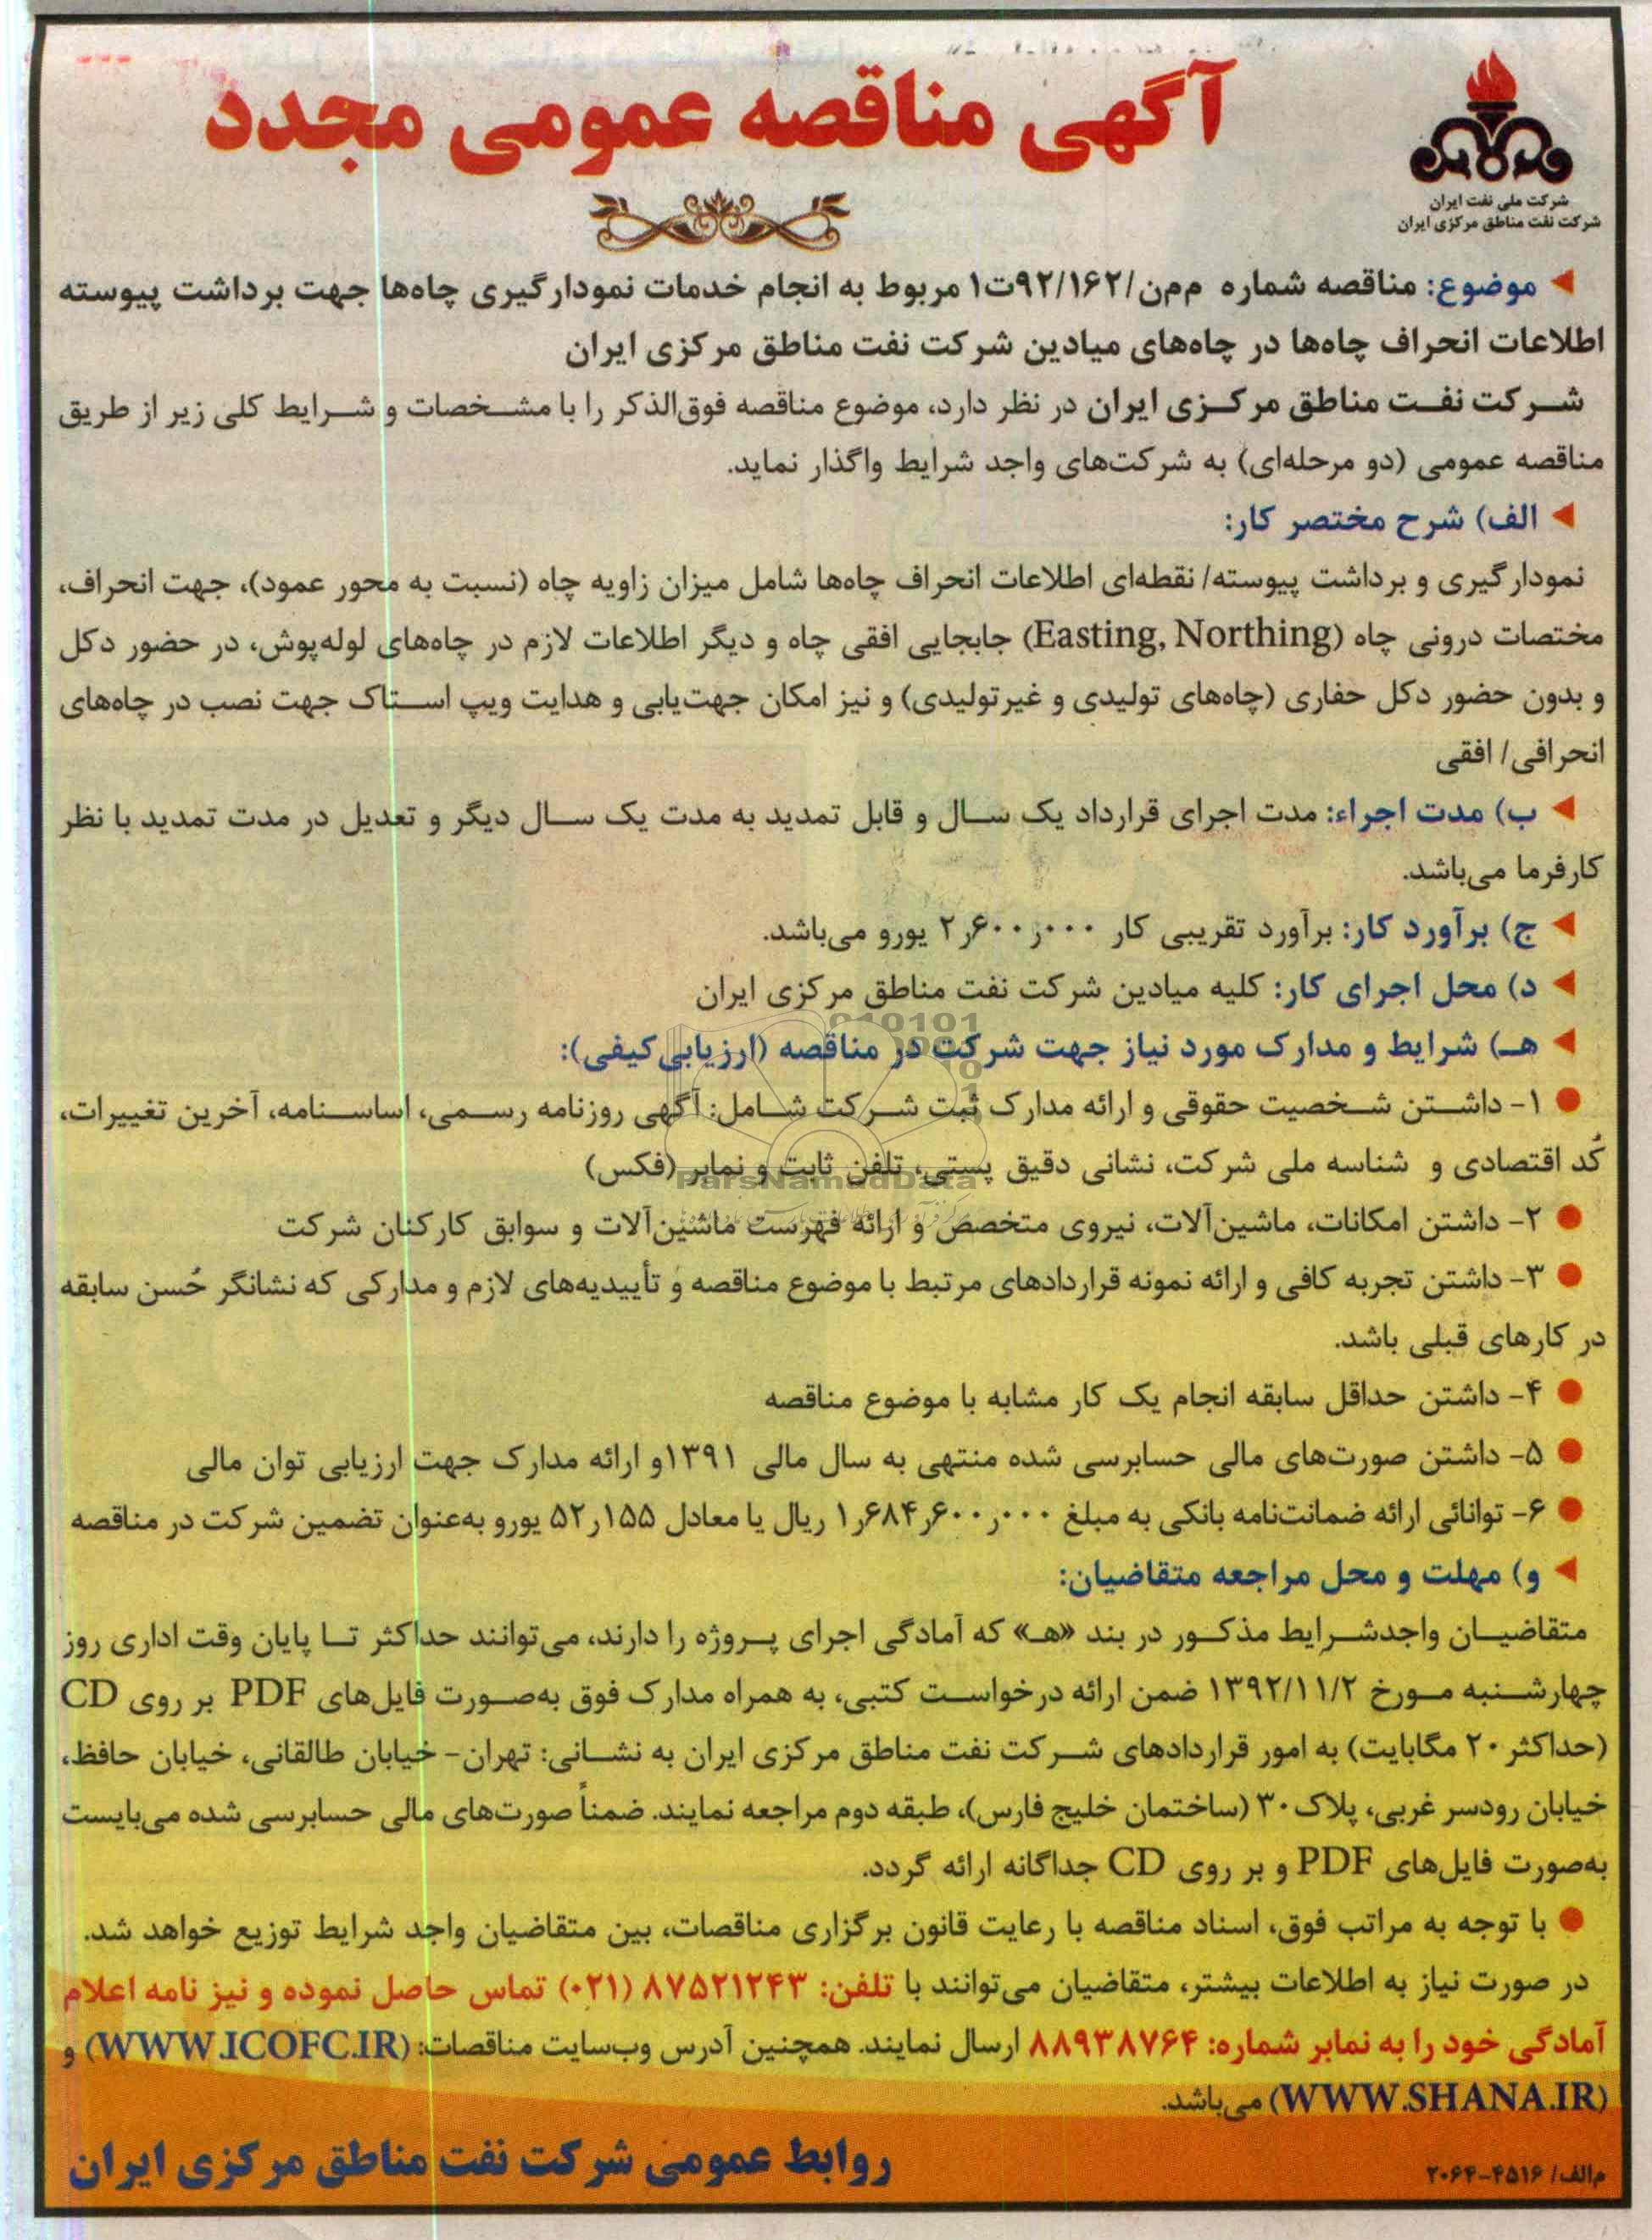 آگهی مناقصه عمومی مجدد
شرکت ملی نفت ایران
شرکت نفت مناطق مرکزی ایران
موضوع: مناقصه شماره م‌م‌ن/۹۲/۱۶۲ت۱ مربوط به انجام خدمات نمودارگیری چاه‌ها جهت برداشت پیوسته
اطلاعات انحراف چاه‌ها در چاه‌های میادین شرکت نفت مناطق مرکزی ایران
شرکت نفت مناطق مرکزی ایران در نظر دارد، موضوع مناقصه فوق‌الذکر را با مشخصات و شرایط کلی زیر از طریق
مناقصه عمومی (دو مرحله‌ای) به شرکت‌های واجد شرایط واگذار نماید.
الف) شرح مختصر کار:
نمودارگیری و برداشت پیوسته/ نقطه‌ای اطلاعات انحراف چاه‌ها شامل میزان زاویه چاه (نسبت به محور عمود)، جهت انحراف،
مختصات درونی چاه (Easting, Northing) جابجایی افقی چاه و دیگر اطلاعات لازم در چاه‌های لوله‌پوش، در حضور دکل
و بدون حضور دکل حفاری (چاه‌های تولیدی و غیرتولیدی) و نیز امکان جهت‌یابی و هدایت ویپ استاک جهت نصب در چاه‌های
انحرافی/ افقی
ب) مدت اجراء: مدت اجرای قرارداد یک سال و قابل تمدید به مدت یک سال دیگر و تعدیل در مدت تمدید با نظر
کارفرما می‌باشد.
ج) برآورد کار: برآورد تقریبی کار ۲٫۶۰۰٫۰۰۰ یورو می‌باشد.
د) محل اجرای کار: کلیه میادین شرکت نفت مناطق مرکزی ایران
هـ) شرایط و مدارک مورد نیاز جهت شرکت در مناقصه (ارزیابی کیفی):
۱- داشتن شخصیت حقوقی و ارائه مدارک ثبت شرکت شامل: آگهی روزنامه رسمی، اساسنامه، آخرین تغییرات،
کُد اقتصادی و شناسه ملی شرکت، نشانی دقیق پستی، تلفن ثابت و نمابر (فکس)
ParsNamadData
۲- داشتن امکانات، ماشین‌آلات، نیروی متخصص و ارائه فهرست ماشین‌آلات و سوابق کارکنان شرکت
۳- داشتن تجربه کافی و ارائه نمونه قراردادهای مرتبط با موضوع مناقصه و تأییدیه‌های لازم و مدارکی که نشانگر حُسن سابقه
در کارهای قبلی باشد.
۴- داشتن حداقل سابقه انجام یک کار مشابه با موضوع مناقصه
۵- داشتن صورت‌های مالی حسابرسی شده منتهی به سال مالی ۱۳۹۱و ارائه مدارک جهت ارزیابی توان مالی
۶- توانائی ارائه ضمانت‌نامه بانکی به مبلغ ۱٫۶۸۴٫۶۰۰٫۰۰۰ ریال یا معادل ۵۲٫۱۵۵ یورو به‌عنوان تضمین شرکت در مناقصه
و) مهلت و محل مراجعه متقاضیان:
متقاضیان واجدشرایط مذکور در بند «هـ» که آمادگی اجرای پروژه را دارند، می‌توانند حداکثر تا پایان وقت اداری روز
چهارشنبه مورخ ۱۳۹۲/۱۱/۲ ضمن ارائه درخواست کتبی، به همراه مدارک فوق به‌صورت فایل‌های PDF بر روی CD
(حداکثر ۲۰ مگابایت) به امور قراردادهای شرکت نفت مناطق مرکزی ایران به نشانی: تهران- خیابان طالقانی، خیابان حافظ،
خیابان رودسر غربی، پلاک۳۰ (ساختمان خلیج فارس)، طبقه دوم مراجعه نمایند. ضمناً صورت‌های مالی حسابرسی شده می‌بایست
به‌صورت فایل‌های PDF و بر روی CD جداگانه ارائه گردد.
با توجه به مراتب فوق، اسناد مناقصه با رعایت قانون برگزاری مناقصات، بین متقاضیان واجد شرایط توزیع خواهد شد.
در صورت نیاز به اطلاعات بیشتر، متقاضیان می‌توانند با تلفن: ۸۷۵۲۱۲۴۳ (۰۲۱) تماس حاصل نموده و نیز نامه اعلام
آمادگی خود را به نمابر شماره: ۸۸۹۳۸۷۶۴ ارسال نمایند. همچنین آدرس وب‌سایت مناقصات: (WWW.ICOFC.IR) و
(WWW.SHANA.IR) می‌باشد.
روابط عمومی شرکت نفت مناطق مرکزی ایران
م‌الف/ ۴۵۱۶-۲۰۶۴